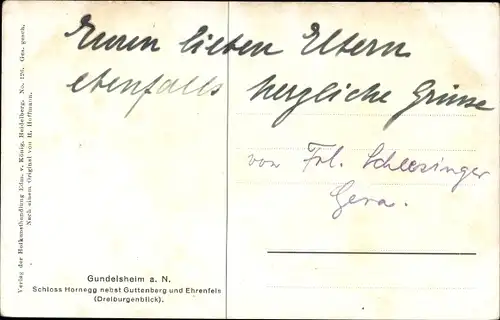 Euren lieben Eltern
ebenfalls herzliche Grüsse
von Frl. Schlesinger
Gera.
Verlag der Hofkunsthandlung Edm. v. König, Heidelberg. No. 120. Ges. gesch.
Nach einem Original von H. Hoffmann.
Gundelsheim a. N.
Schloss Hornegg nebst Guttenberg und Ehrenfels
(Dreiburgenblick).